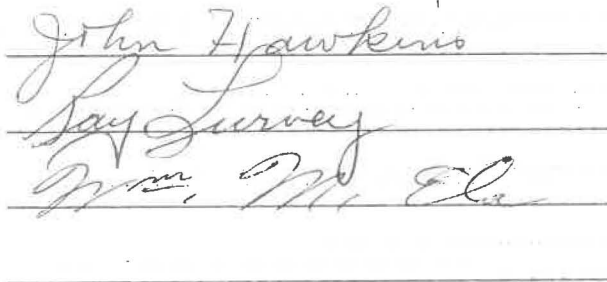 John Hawkins
Ray Survey
Wm. M. Ela